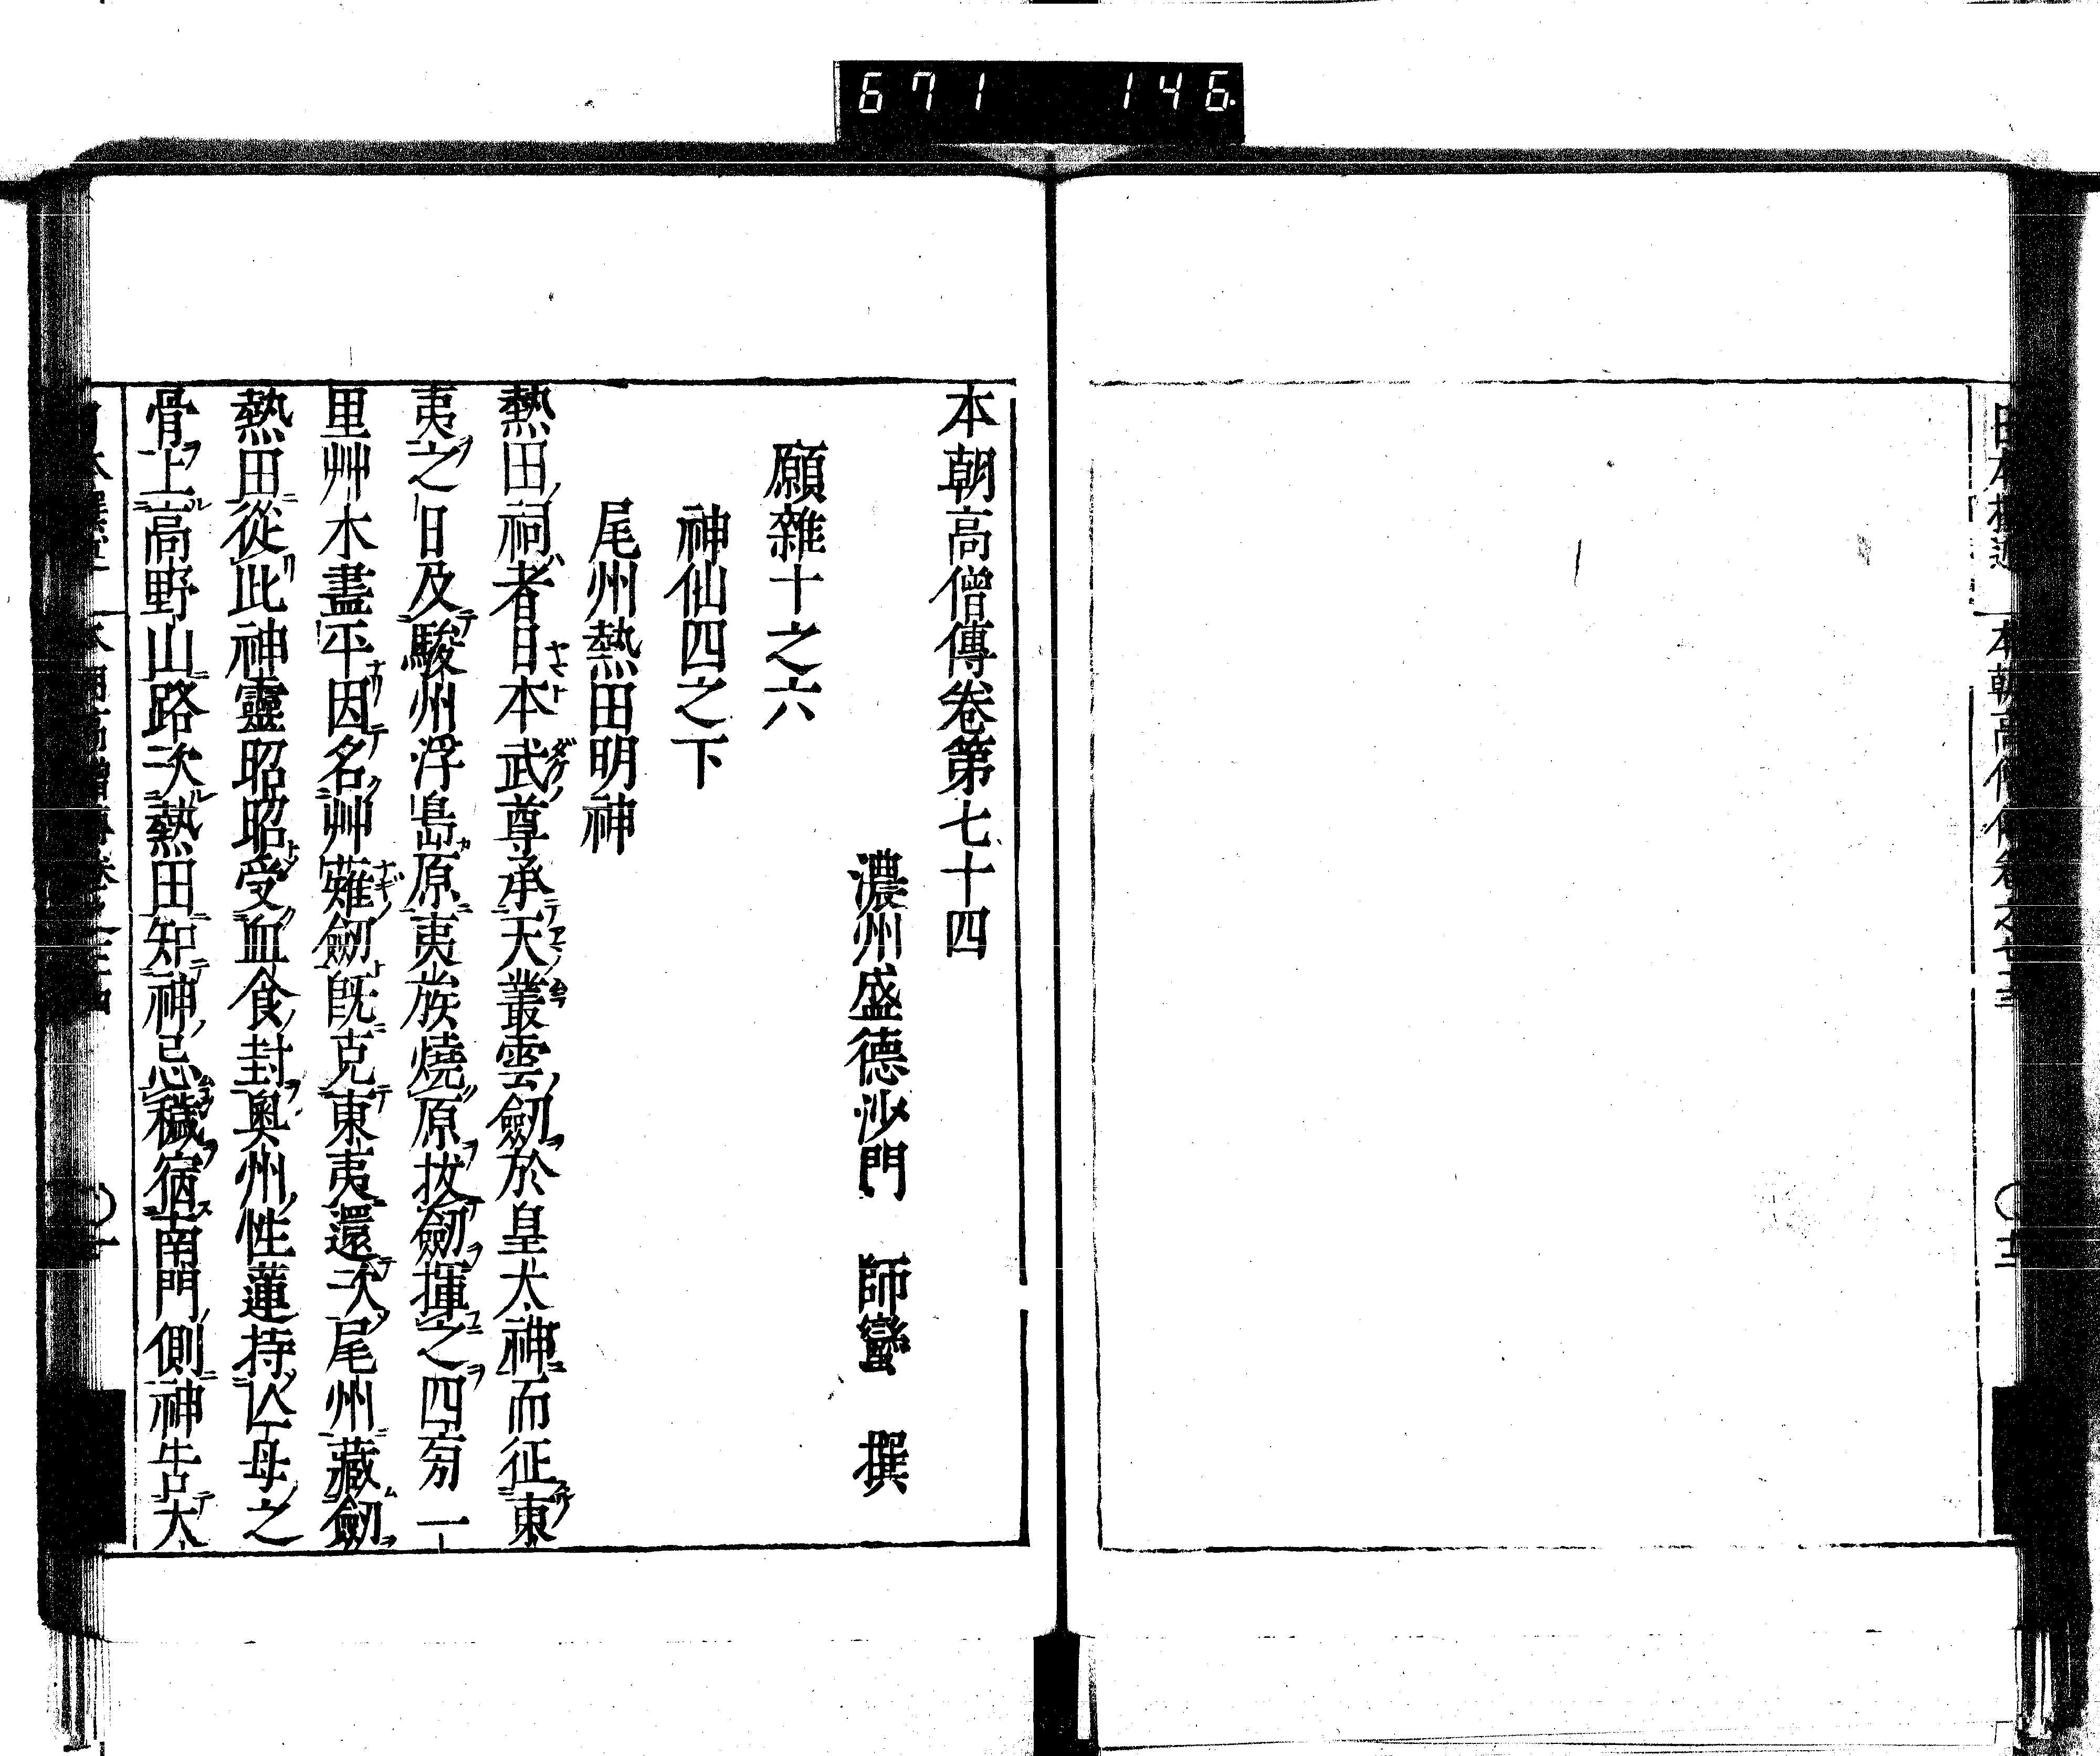 671 146
本朝高僧傳卷第七十四
濃州盛德沙門 師蠻 撰
願雜十之六
神仙四之下
尾州熱田明神
熱田祠者日本武尊承天叢雲劒於皇太神而征東
夷之日及駿州浮島原夷族燒原拔劒揮之四旁一
里艸木盡平因名艸薙劒既克東夷還次尾州藏劒
熱田從此神靈昭昭受血食封奧州性蓮持亡母之
骨上高野山路次熱田知神忌穢宿南門側神告大